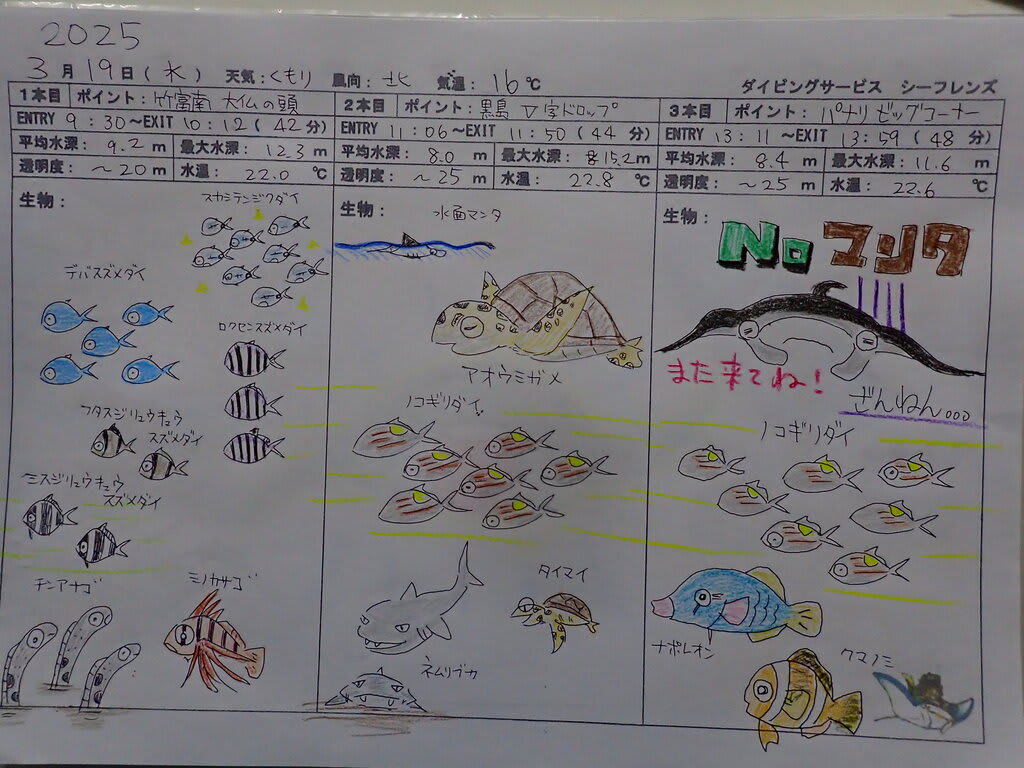 2025
3月19日(水) 天気:くもり 風向:北 気温:16℃ ダイビングサービス シーフレンズ
1本目 ポイント:竹富南 大仏の頭
ENTRY 9:30〜EXIT 10:12(42分)
平均水深:9.2m 最大水深:12.3m
透明度:〜20m 水温:22.0℃
生物:
スカシテンジクダイ
デバスズメダイ
ロクセンスズメダイ
フタスジリュウキュウ
スズメダイ
ミスジリュウキュウ
スズメダイ
チンアナゴ
ミノカサゴ
2本目 ポイント:黒島 V字ドロップ
ENTRY 11:06〜EXIT 11:50(44分)
平均水深:8.0m 最大水深:15.2m
透明度:〜25m 水温:22.8℃
生物:
水面マンタ
アオウミガメ
ノコギリダイ
タイマイ
ネムリブカ
3本目 ポイント:パナリ ビッグコーナー
ENTRY 13:11〜EXIT 13:59(48分)
平均水深:8.4m 最大水深:11.6m
透明度:〜25m 水温:22.6℃
生物:
No マンタ
また来てね!
ざんねん...
ノコギリダイ
ナポレオン
クマノミ